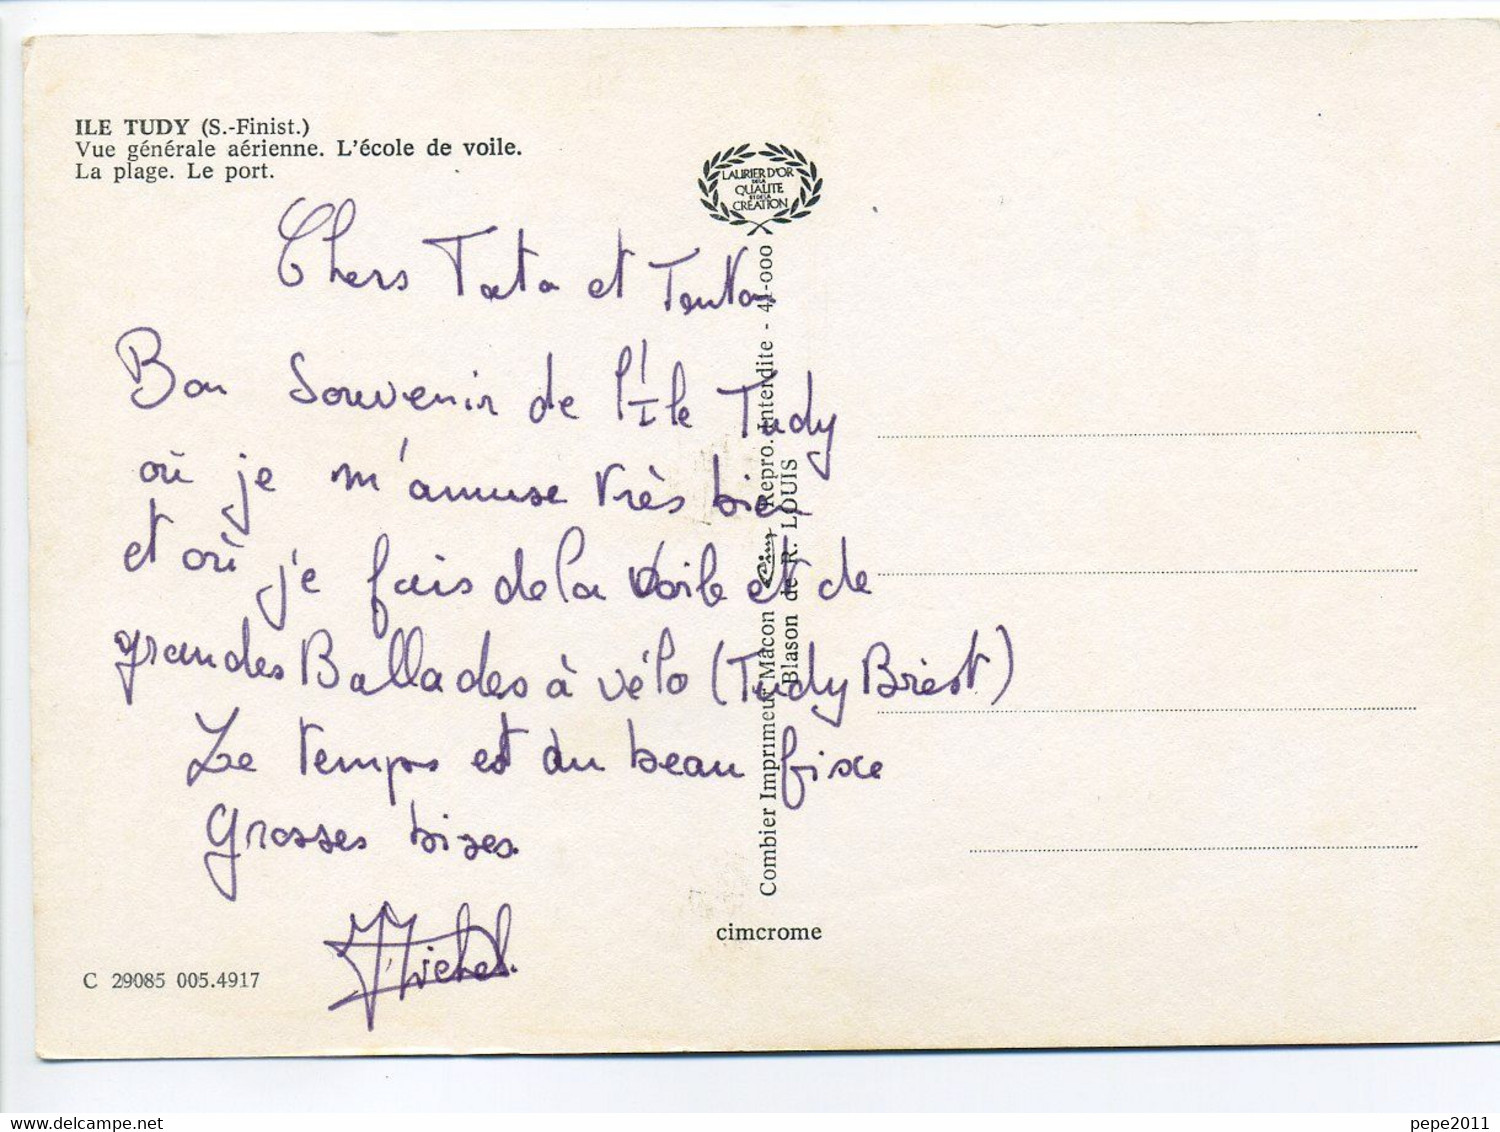 ILE TUDY (S.-Finist.)
Vue générale aérienne. L'école de voile.
La plage. Le port.
LAURIER D'OR
DE LA
QUALITE
ET DE LA
CREATION
Chers Tata et Tonton
Bon Souvenir de l'Ile Tudy
où je m'amuse très bien
et où je fais de la voile et de
grandes Ballades à vélo (Tudy Brest)
Le temps est au beau fixe
Grosses bises.
Michel.
C 29085 005.4917
Combier Imprimeur Mâcon Cim Repro. Interdite - 41-000
Blason de R. LOUIS
cimcrome
pepe2011